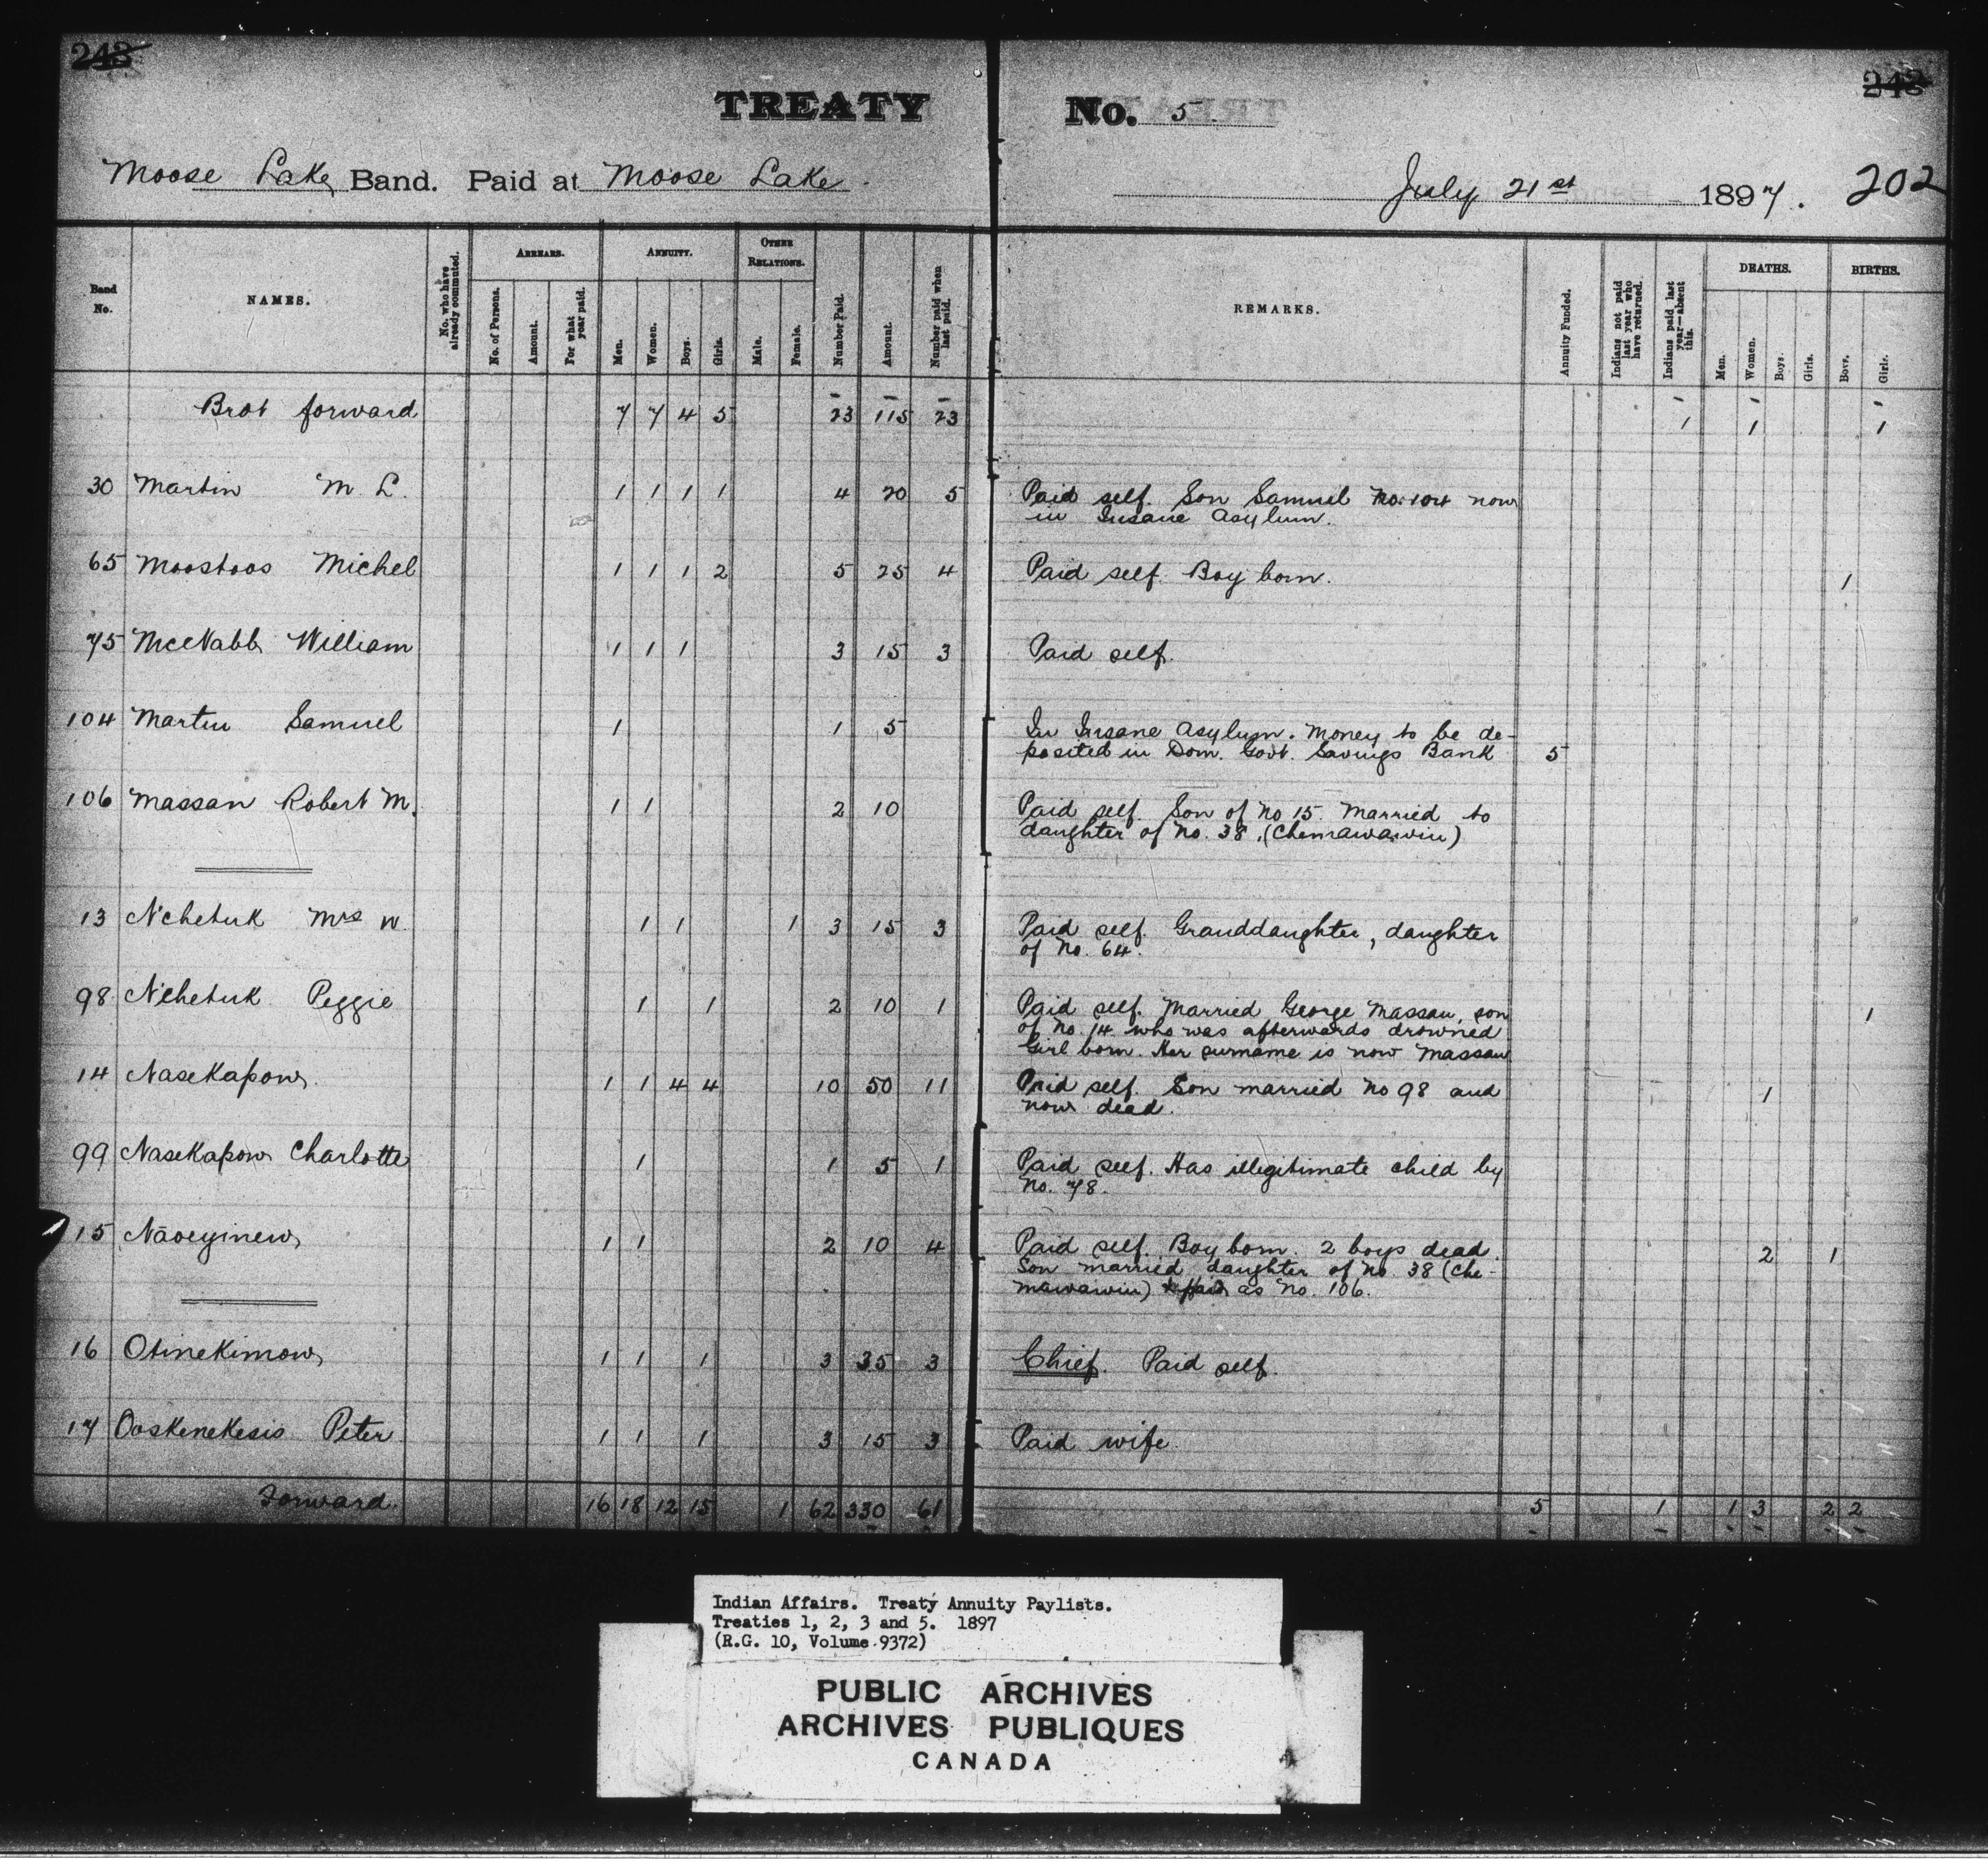 243
243
TREATY No. 5
Moose Lake Band. Paid at Moose Lake.
July 21st 1897. 202
Band No.
NAMES.
No. who have already commuted.
ARREARS.
No. of Persons.
Amount.
For what year paid.
ANNUITY.
Men.
Women.
Boys.
Girls.
OTHER RELATIONS.
Male.
Female.
Number Paid.
Amount.
Number paid when last paid.
REMARKS.
Annuity Funded.
Indians not paid last year who have returned.
Indians paid last year—absent this.
DEATHS.
Men.
Women.
Boys.
Girls.
BIRTHS.
Boys.
Girls.
Brot forward 7 7 4 5 23 115 23 1 1 1
30 Martin M. L. 1 1 1 1 4 20 5 Paid self. Son Samuel No. 104 now
in Insane Asylum.
65 Moostoos Michel 1 1 1 2 5 25 4 Paid self. Boy born. 1
75 McNabb William 1 1 1 3 15 3 Paid self.
104 Martin Samuel 1 1 5 In Insane Asylum. Money to be de-
posited in Dom. Govt. Savings Bank 5
106 Massan Robert M. 1 1 2 10 Paid self. Son of No 15. Married to
daughter of No. 38. (Chemawawin)
13 Nchetuk Mrs W. 1 1 1 3 15 3 Paid self. Granddaughter, daughter
of No. 64.
98 Nchetuk Peggie 1 1 2 10 1 Paid self. Married George Massan, son
of No. 14 who was afterwards drowned
Girl born. Her surname is now Massan 1
14 Nasekapow. 1 1 4 4 10 50 11 Paid self. Son married No 98 and
now dead. 1
99 Nasekapow Charlotte 1 1 5 1 Paid self. Has illegitimate child by
No. 78.
15 Naoeyinew 1 1 2 10 4 Paid self. Boy born. 2 boys dead.
Son married daughter of No. 38 (Che-
mawawin) & paid as No. 106. 2 1
16 Otinekimow 1 1 1 3 35 3 Chief. Paid self.
17 Ooskenekesis Peter 1 1 1 3 15 3 Paid wife.
Forward. 16 18 12 15 1 62 330 61 5 1 1 3 2 2
Indian Affairs. Treaty Annuity Paylists.
Treaties 1, 2, 3 and 5. 1897
(R.G. 10, Volume 9372)
PUBLIC ARCHIVES
ARCHIVES PUBLIQUES
CANADA